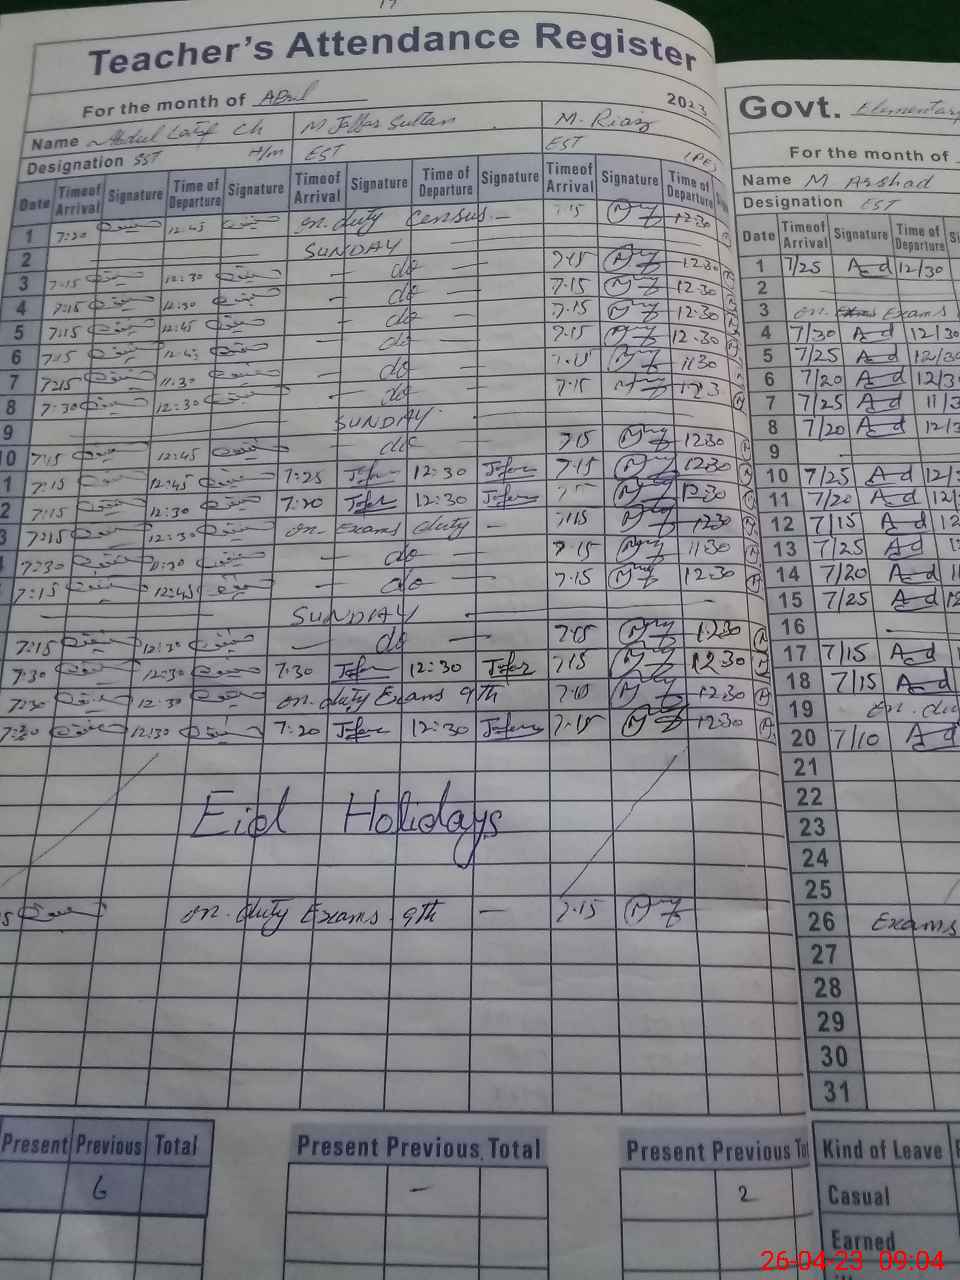 17
Teacher's Attendance Register
For the month of April 2023
Name Abdul Latif Ch M Jaffar Sultan M. Riaz
Designation SST H/m EST EST (PE)
Date Time of Arrival Signature Time of Departure Signature Time of Arrival Signature Time of Departure Signature Time of Arrival Signature Time of Departure
1 7:20 12:45 on. duty Census - 7.15 12.30
2 SUNDAY
3 7:15 12:30 - do - 7.15 12.30
4 7:15 12:30 - do - 7.15 12.30
5 7:15 12:45 - do - 7.15 12.30
6 7:15 12:45 - do - 7.15 12.30
7 7:15 11:30 - do - 7.15 11.30
8 7:30 12:30 - do - 7.15 12.3
9 SUNDAY
10 7:15 12:45 - do - 7.15 12.30
1 7:15 12:45 7:25 Jafar 12:30 Jafar 7.15 12.30
2 7:15 12:30 7:20 Jafar 12:30 Jafar 7.15 12.30
3 7:15 12:30 on. Exams duty - 7.15 12.30
7:30 - do - 7.15 11.30
7:15 12:45 - do - 7.15 12.30
SUNDAY
7:15 12:30 - do - 7.15 12.30
7:30 12:30 7:30 Jafar 12:30 Jafar 7.15 12.30
7:30 12:30 on. duty Exams 9th 7.10 12.30
7:20 12:30 7:20 Jafar 12:30 Jafar 7.15 12.30
Eid Holidays
on. duty Exams 9th - 7.15
Present Previous Total
6
Present Previous Total
-
Present Previous To
2
Govt. Elementary
For the month of
Name M Arshad
Designation EST
Date Time of Arrival Signature Time of Departure
1 7/25 A d 12/30
2
3 on. Exams
4 7/30 A d 12/30
5 7/25 A d 12/30
6 7/20 A d 12/3
7 7/25 A d 11/3
8 7/20 A d 12/3
9
10 7/25 A d 12/3
11 7/20 A d 12/
12 7/15 A d 12
13 7/25 A d 1
14 7/20 A d 1
15 7/25 A d 12
16
17 7/15 A d 1
18 7/15 A d
19 on. du
20 7/10 A d
21
22
23
24
25
26 Exams
27
28
29
30
31
Kind of Leave
Casual
Earned
26-04-23 09:04